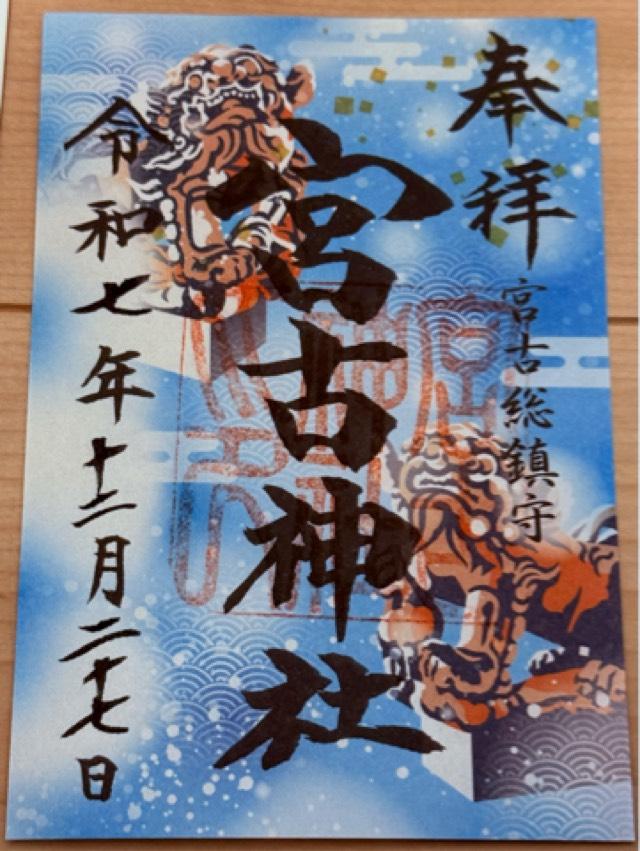 奉拝
宮古総鎮守
宮古神社
令和七年十二月二十七日